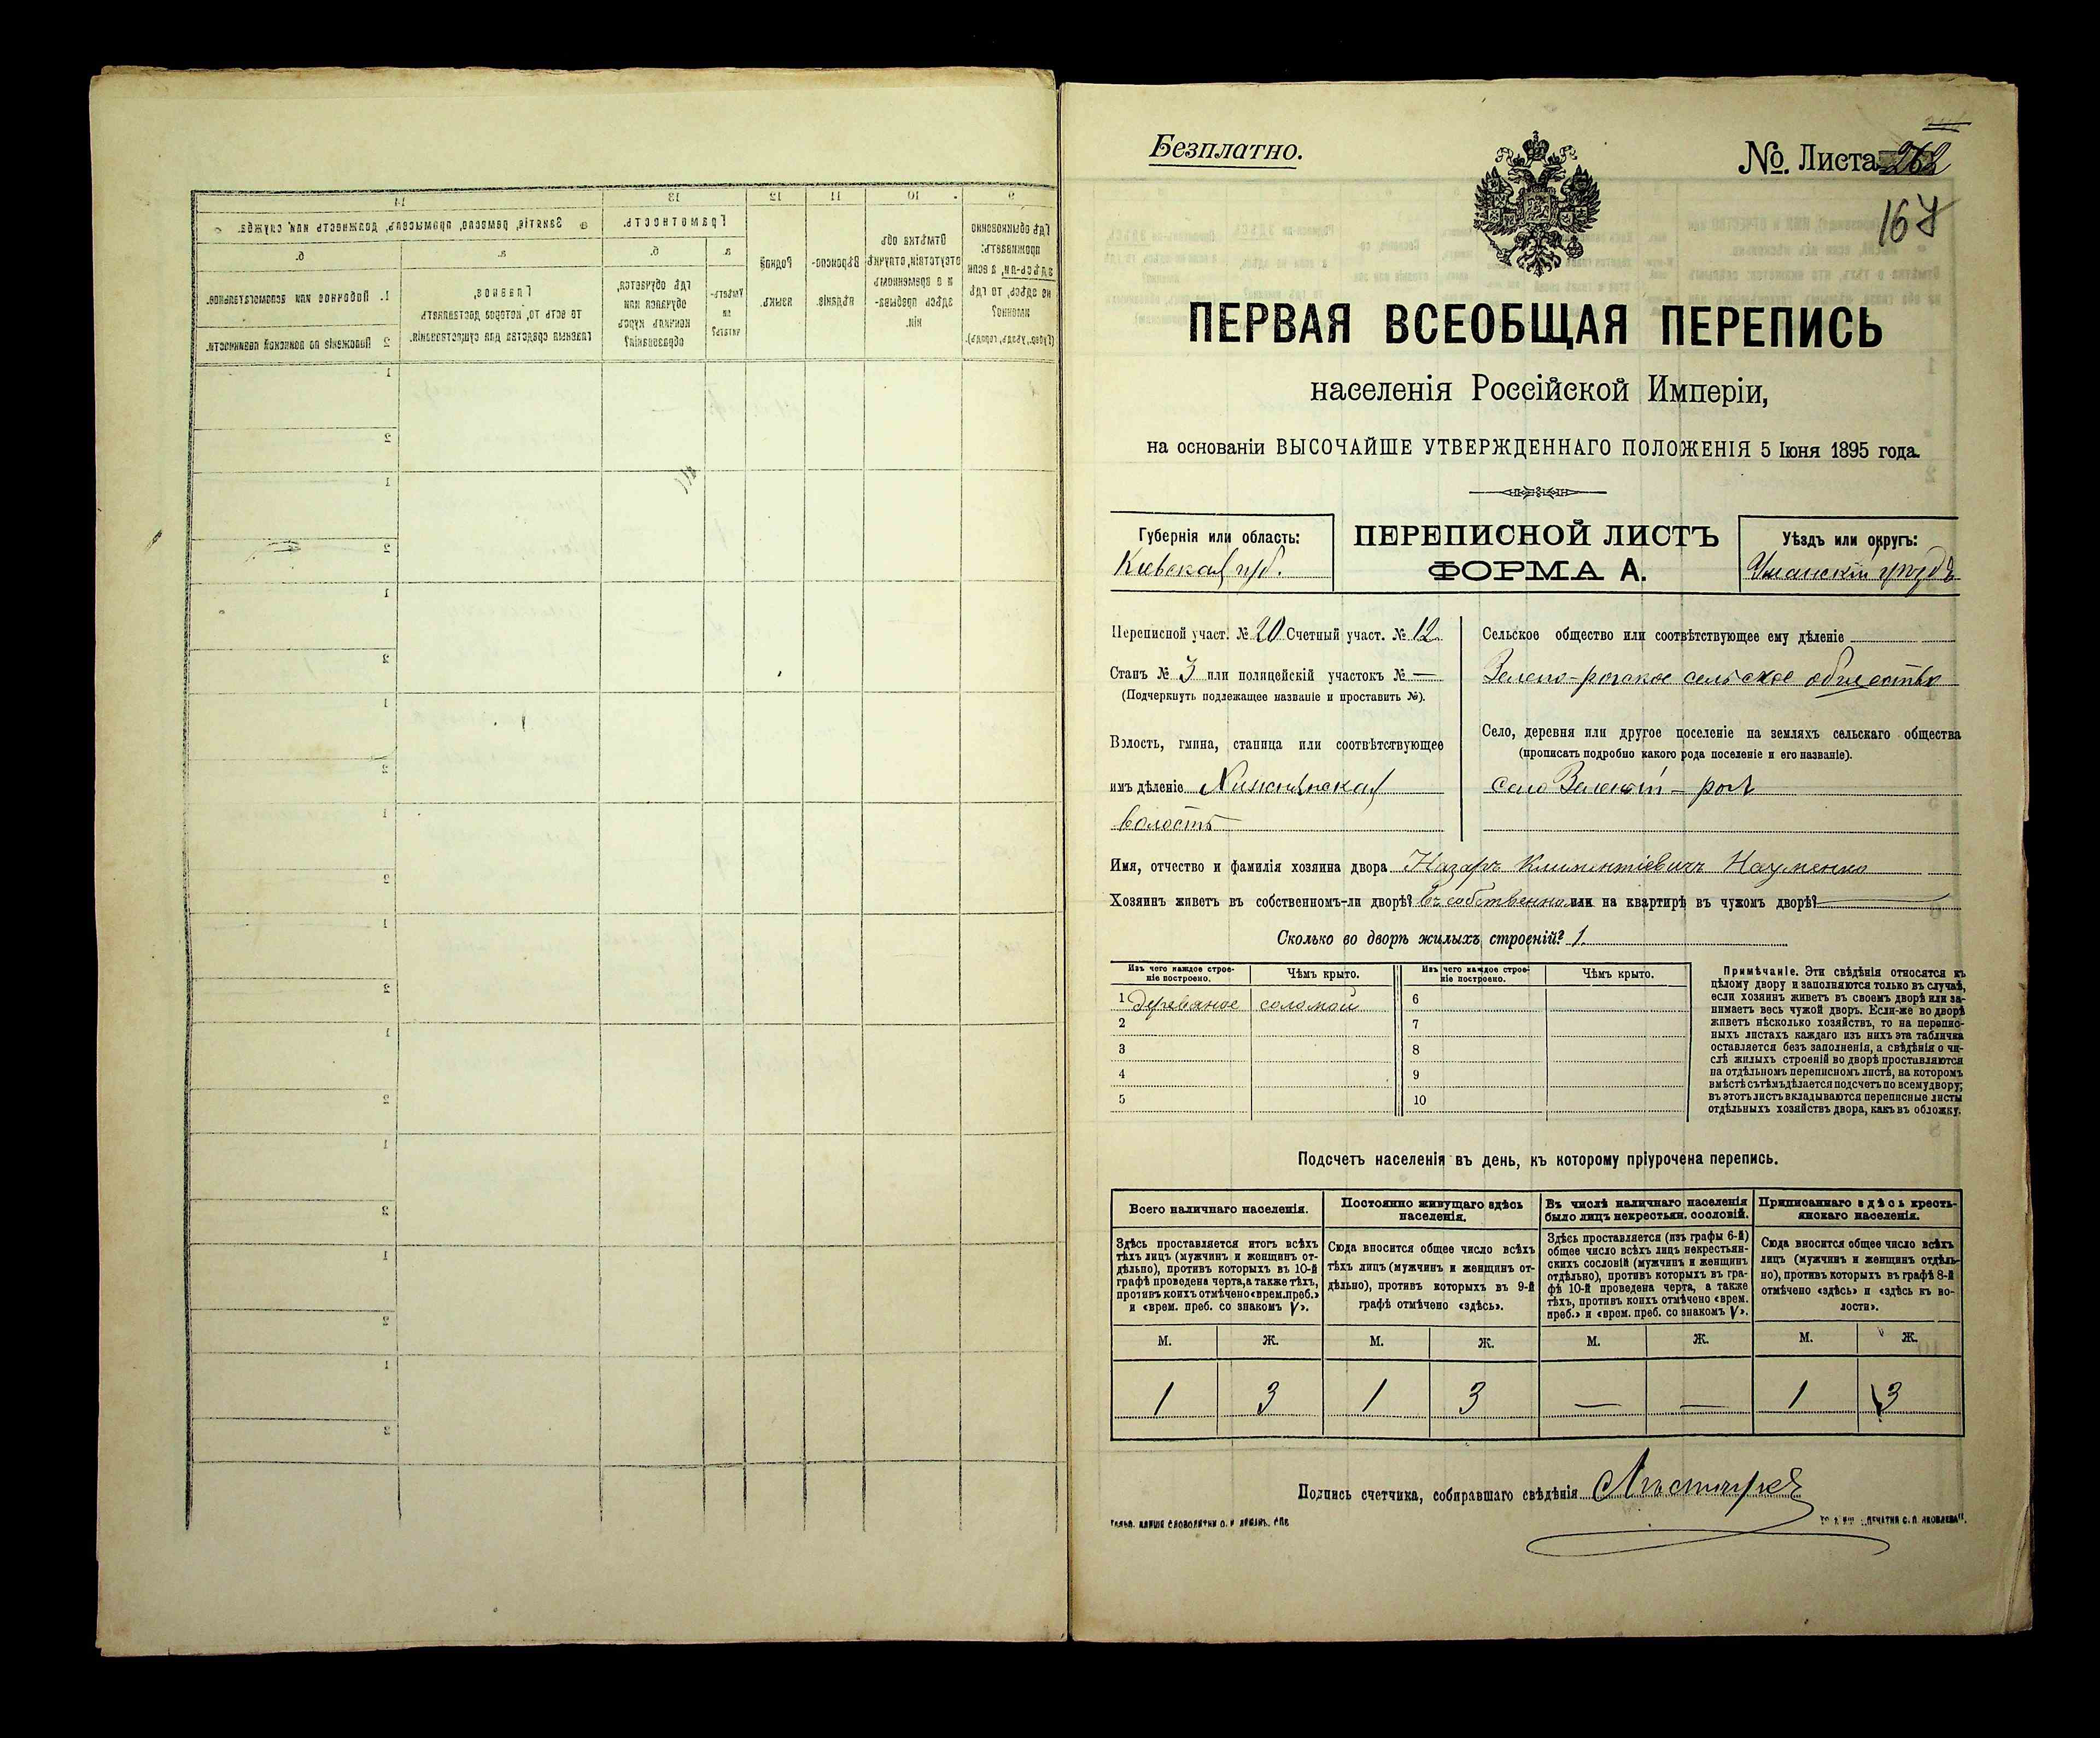 Безплатно.
№. Листа 262
167
ПЕРВАЯ ВСЕОБЩАЯ ПЕРЕПИСЬ
населенія Россійской Имперіи,
на основаніи ВЫСОЧАЙШЕ УТВЕРЖДЕННАГО ПОЛОЖЕНІЯ 5 Іюня 1895 года.
Губернія или область:
Кіевская губ.
ПЕРЕПИСНОЙ ЛИСТЪ
ФОРМА А.
Уѣздъ или округъ:
Уманскій уѣздъ
Переписной участ. № 20 Счетный участ. № 12
Станъ № 3 или полицейскій участокъ № —
(Подчеркнуть подлежащее названіе и проставить №).
Волость, гмина, станица или соотвѣтствующее
имъ дѣленіе
волость
Сельское общество или соотвѣтствующее ему дѣленіе
Зелено-рогское сельское общество
Село, деревня или другое поселеніе на земляхъ сельскаго общества
(прописать подробно какого рода поселеніе и его названіе).
село Зеленый-рогъ
Имя, отчество и фамилія хозяина двора Назаръ Климентіевичъ Науменко
Хозяинъ живетъ въ собственномъ-ли дворѣ? въ собственномъ или на квартирѣ въ чужомъ дворѣ? —
Сколько во дворѣ жилыхъ строеній? 1.
Изъ чего каждое строеніе построено. Чѣмъ крыто. Изъ чего каждое строеніе построено. Чѣмъ крыто.
1 деревяное соломой 6
2 7
3 8
4 9
5 10
Примѣчаніе. Эти свѣдѣнія относятся къ
цѣлому двору и заполняются только въ случаѣ,
если хозяинъ живетъ въ своемъ дворѣ или за-
нимаетъ весь чужой дворъ. Если-же во дворѣ
живетъ нѣсколько хозяйствъ, то на перепис-
ныхъ листахъ каждаго изъ нихъ эта табличка
оставляется безъ заполненія, а свѣдѣнія о чи-
слѣ жилыхъ строеній во дворѣ проставляются
на отдѣльномъ переписномъ листѣ, на которомъ
вмѣстѣ съ тѣмъ дѣлается подсчетъ по всему двору;
въ этотъ листъ вкладываются переписные листы
отдѣльныхъ хозяйствъ двора, какъ въ обложку.
Подсчетъ населенія въ день, къ которому пріурочена перепись.
Всего наличнаго населенія.
Здѣсь проставляется итогъ всѣхъ
тѣхъ лицъ (мужчинъ и женщинъ от-
дѣльно), противъ которыхъ въ 10-й
графѣ проведена черта, а также тѣхъ,
противъ коихъ отмѣчено «врем. преб.»
и «врем. преб. со знакомъ V».
Постоянно живущаго здѣсь
населенія.
Сюда вносится общее число всѣхъ
тѣхъ лицъ (мужчинъ и женщинъ от-
дѣльно), противъ которыхъ въ 9-й
графѣ отмѣчено «здѣсь».
Въ числѣ наличнаго населенія
было лицъ некрестьян. сословій.
Здѣсь проставляется (изъ графы 6-й)
общее число всѣхъ лицъ некрестьян-
скихъ сословій (мужчинъ и женщинъ
отдѣльно), противъ которыхъ въ гра-
фѣ 10-й проведена черта, а также
тѣхъ, противъ коихъ отмѣчено «врем.
преб.» и «врем. преб. со знакомъ V».
Приписаннаго здѣсь кресть-
янскаго населенія.
Сюда вносится общее число всѣхъ
лицъ (мужчинъ и женщинъ отдѣль-
но), противъ которыхъ въ графѣ 8-й
отмѣчено «здѣсь» и «здѣсь къ во-
лости».
М. Ж. М. Ж. М. Ж. М. Ж.
1 3 1 3 — — 1 3
Подпись счетчика, собиравшаго свѣдѣнія